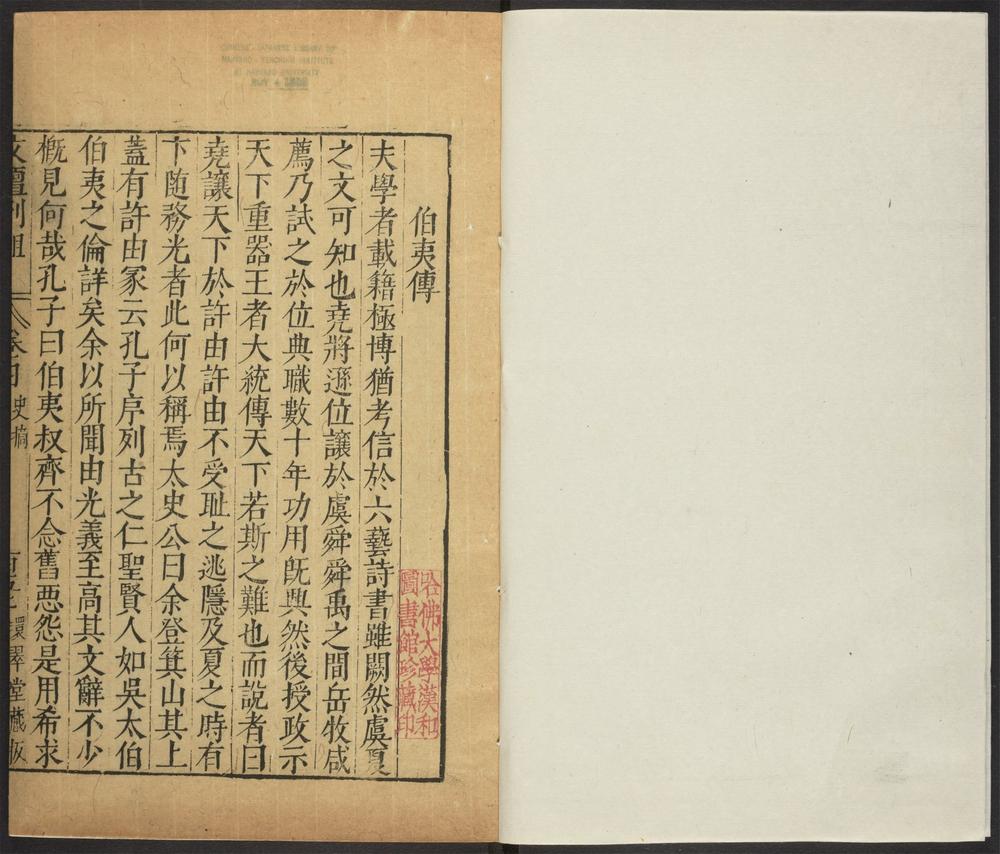 伯夷傳
夫學者載籍極博猶考信於六藝詩書雖闕然虞夏
之文可知也堯將遜位讓於虞舜舜禹之間岳牧咸
薦乃試之於位典職數十年功用既興然後授政示
天下重器王者大統傳天下若斯之難也而說者曰
堯讓天下於許由許由不受耻之逃隱及夏之時有
卞随務光者此何以稱焉太史公曰余登箕山其上
蓋有許由冢云孔子序列古之仁聖賢人如吳太伯
伯夷之倫詳矣余以所聞由光義至高其文辭不少
概見何哉孔子曰伯夷叔齊不念舊惡怨是用希求
史摘 環翠堂藏版
哈佛大學漢和
圖書館珍藏印